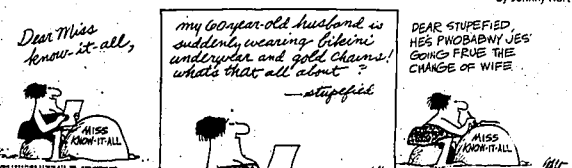 by Johnny Hart
Dear Miss
know-it-all,
MISS
KNOW-IT-ALL
my 60 year-old husband is
suddenly wearing bikini
underwear and gold chains!
what's that all about?
—stupefied
DEAR STUPEFIED,
HE'S PWOBABWY JES'
GOING FRUE THE
CHANGE OF WIFE.
MISS
KNOW-IT-ALL